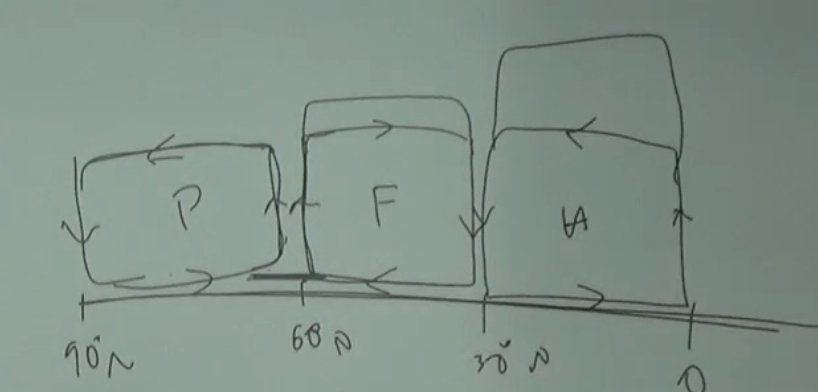 P F H
90°N 60 N 30° N 0